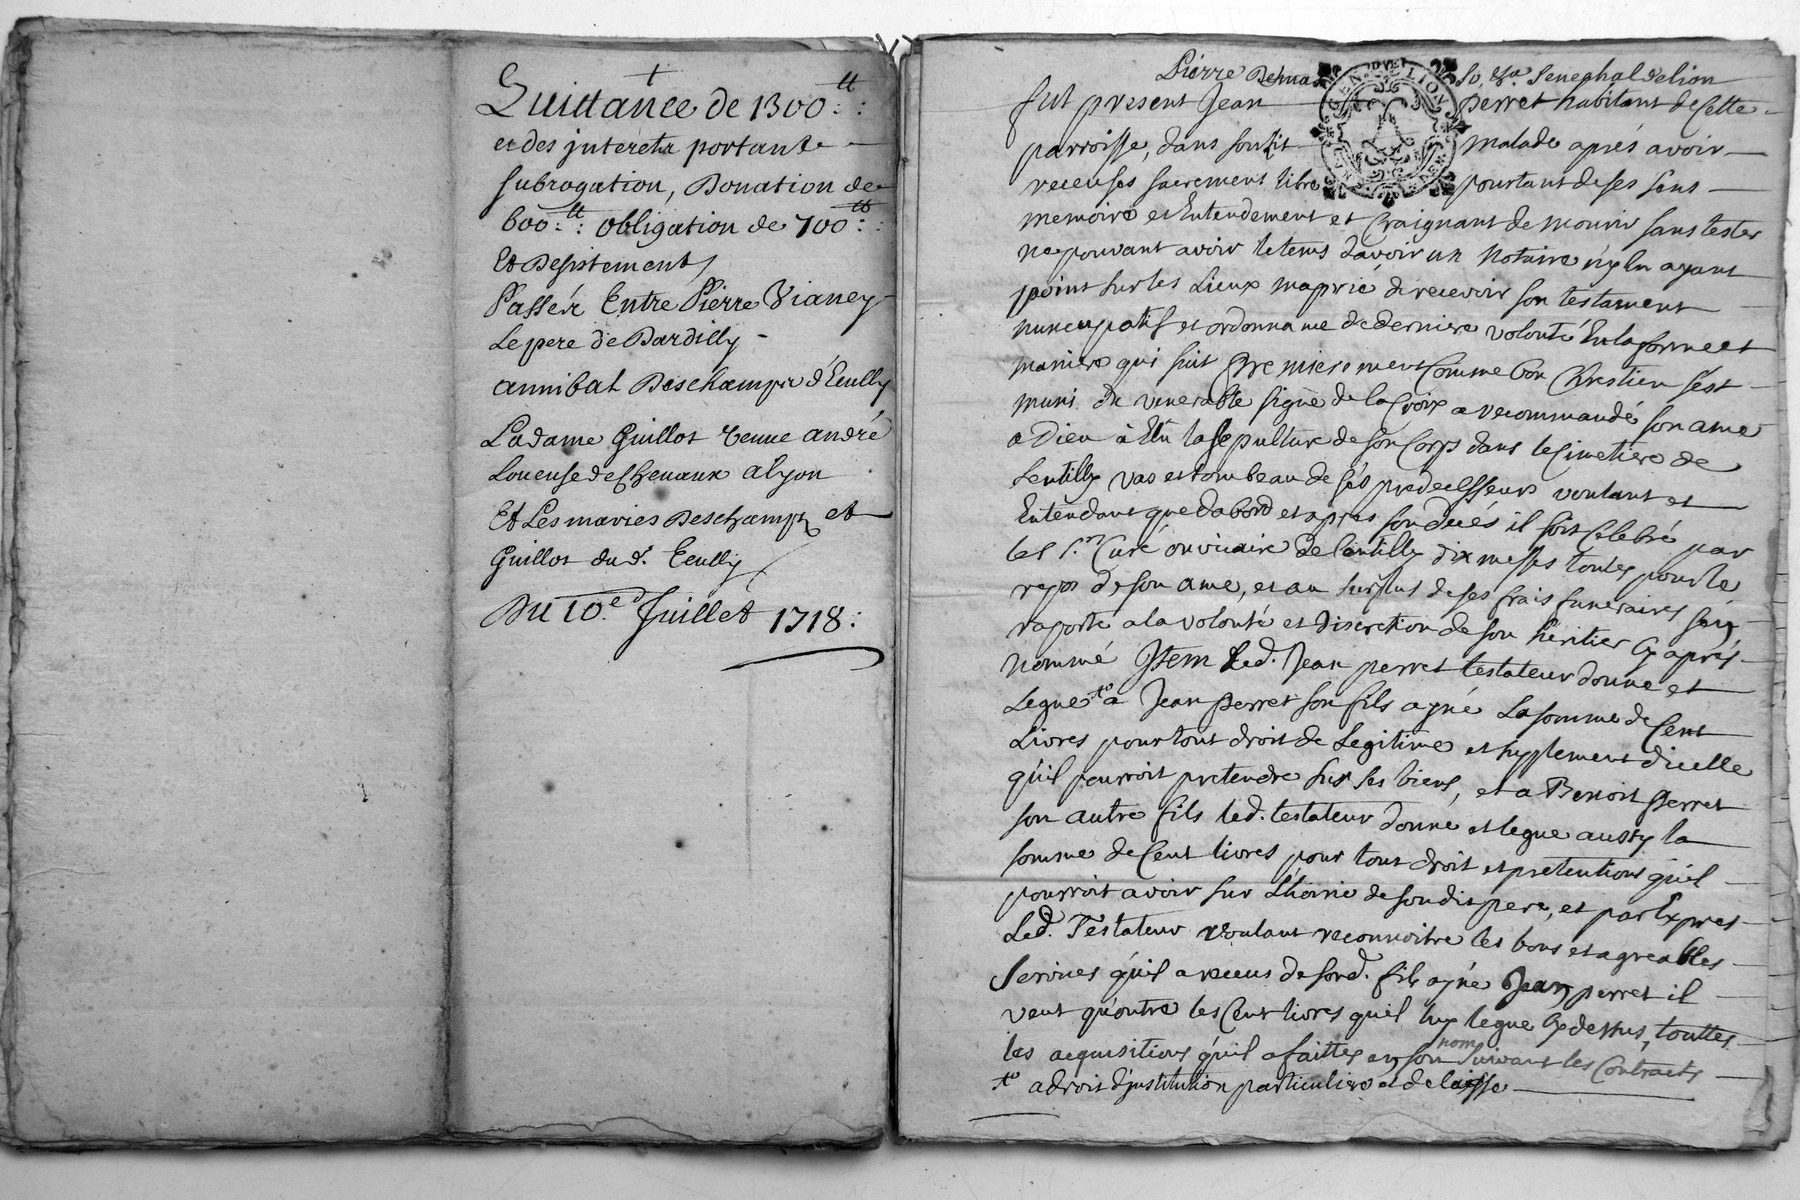 +
Quittance de 1300.tt :
et des jnterets portante
subrogation, Donation de
600.tt : obligation de 700.tt :
Et Desistement
Passée Entre Pierre Vianey
Le pere de Dardilly
annibal Deschamps d'Ecully
La dame Guillot veuve andré
Loueuse de Chevaux a lyon
Et Les mariés Deschamps et
Guillot du d. Ecully
Du 10e Juillet 1718 :
Pierre Senechal de lion
fut present Jean perret habitant de Cette
parroisse, dans son lit malade aprés avoir
receu ses sacrement libre pourtant de ses sens
memoire et Entendement et Craignant de mourir sans tester
ne pouvant avoir le tems davoir un Notaire n'y en ayant
point sur les Lieux ma prié de recevoir son testament
nuncupatif et ordonnance de derniere volonté En la forme et
maniere qui suit Premierement Comme bon Chrestien s'est
muni du venerable signe de la Croix a recommandé son ame
a Dieu à Elu la sepulture de son Corps dans le Cimetiere de
Lentilly vas et tombeau de ses predecesseurs voulant et
Entendant que dabord et après son decés il soit Celebré par
les S.rs Curé ou vicaire de lentilly dix messes toutes pour le
repos de son ame, et au surplus de ses frais funeraires s'en
raporte a la volonté et discretion de son heritier Cy aprés
nommé Jtem Led. Jean perret testateur donne et
Legue a Jean perret son fils ayné La somme de Cent
Livres pour tout droit de Legitime et supplement dicelle
qu'il pourroit pretendre sur ses biens, et a Benoist perret
son autre fils led. testateur donne et legue aussy la
somme de Cent livres pour tout droit et pretentions qu'il
pourroit avoir sur L'hoirie de son dit pere, et par Expres
Led. Testateur voulant reconnoitre les bons et agreables
Services qu'il a receus de sond. fils ayné Jean perret il
veut qu'outre les Cent livres qu'il luy legue Cy dessus, touttes
les acquisitions qu'il a faittes en son nom suivant les Contracts
a droit d'jnstitution particuliere et delaisse